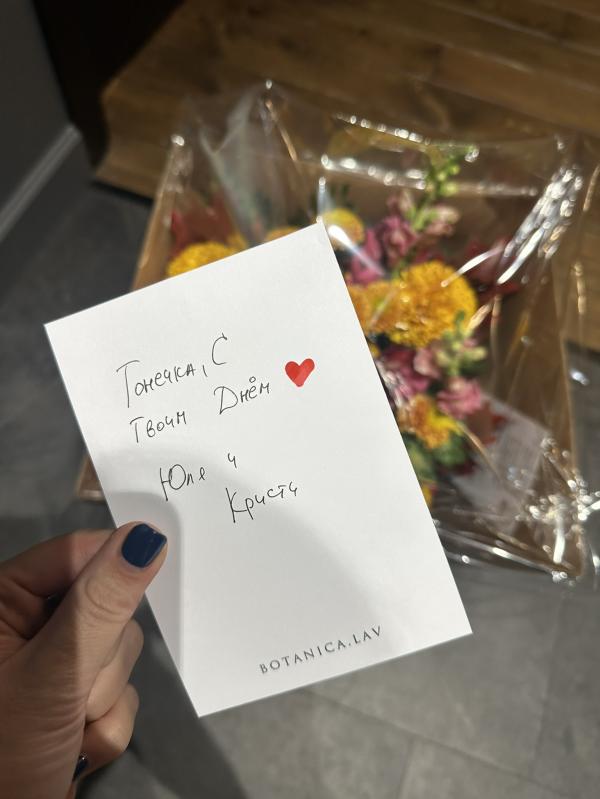 Тонечка, С
Твоим Днём ❤
Юля и
Кристи
BOTANICA.LAV